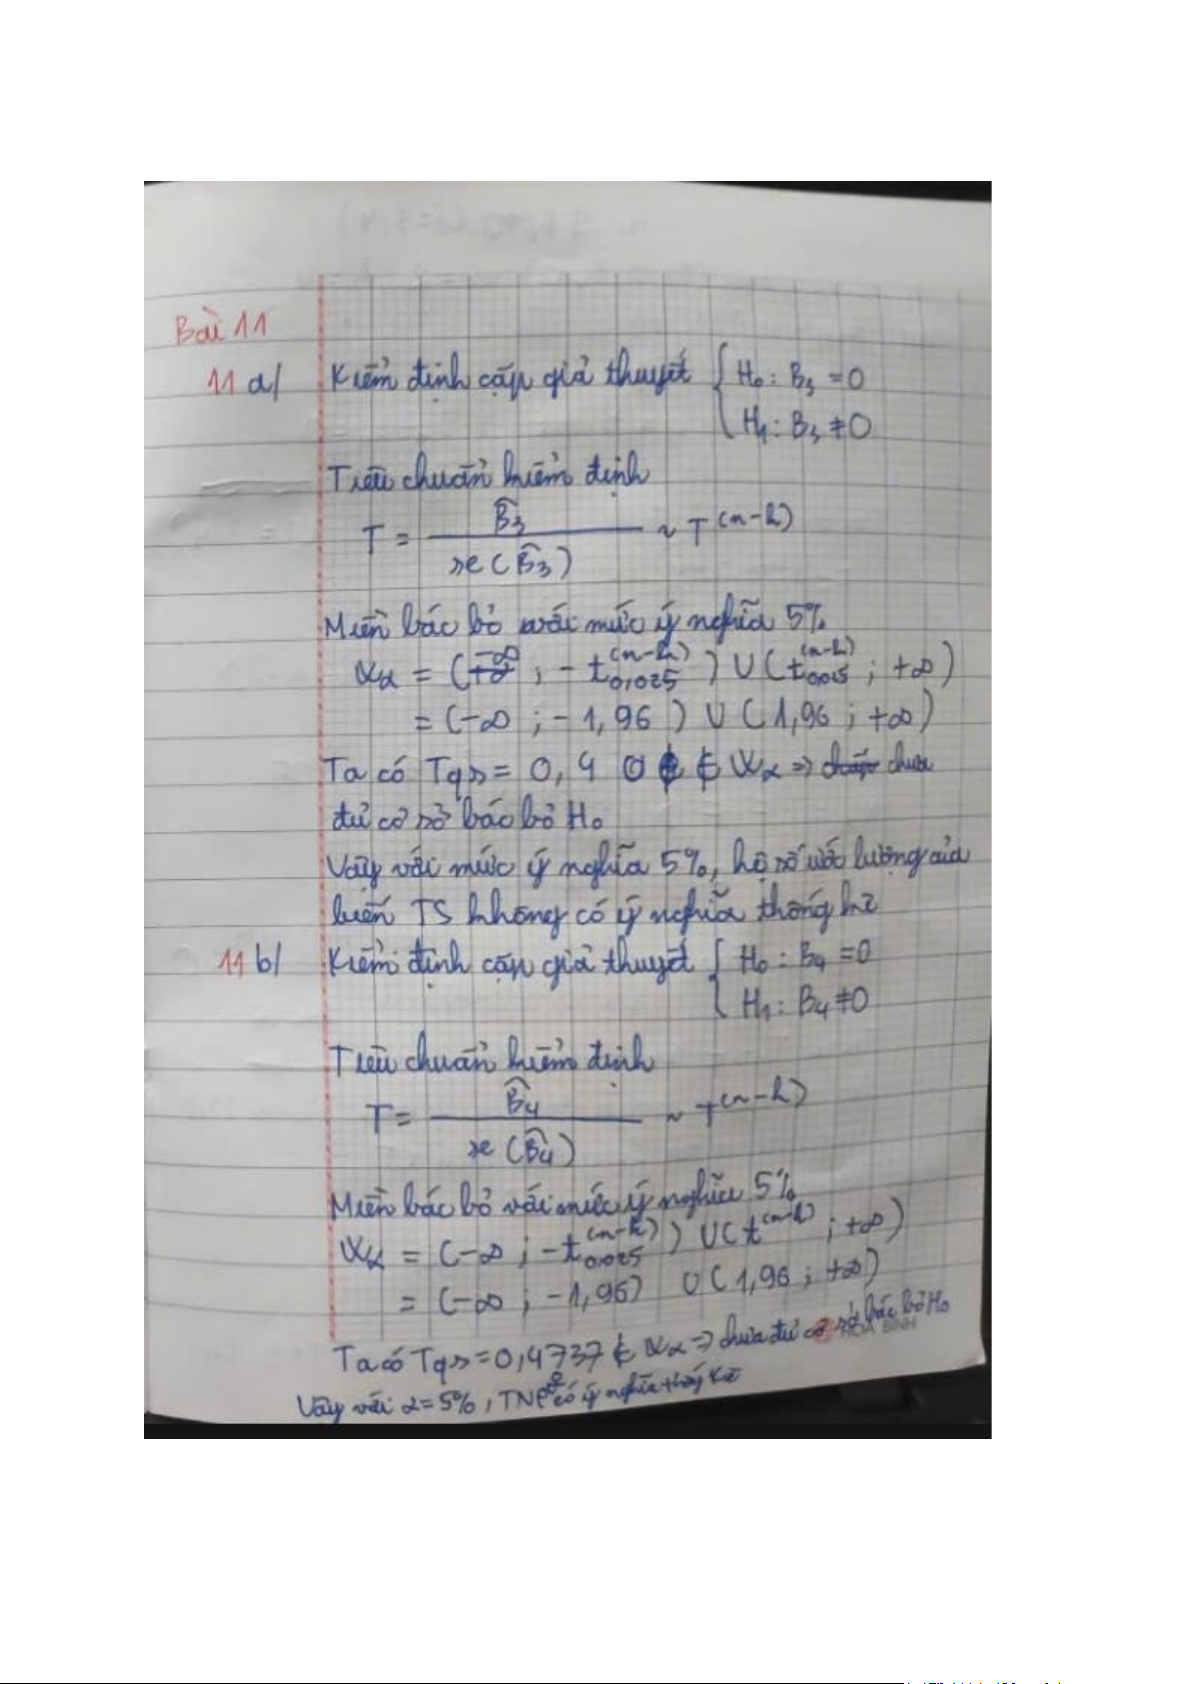 Bài 11
11 a/ Kiểm định cặp giả thuyết { H₀ : B₃ = 0
H₁ : B₃ ≠ 0
Tiêu chuẩn kiểm định
T = B̂₃ / se(B̂₃) ~ T^(n-k)
Miền bác bỏ với mức ý nghĩa 5%
Wα = (-∞ ; -t^(n-k)_0,025) ∪ (t^(n-k)_0,025 ; +∞)
= (-∞ ; -1,96) ∪ (1,96 ; +∞)
Ta có Tqs = 0,4 ∉ Wα => chưa
đủ cơ sở bác bỏ H₀
Vậy với mức ý nghĩa 5%, hệ số ước lượng của
biến TS không có ý nghĩa thống kê
11 b/ Kiểm định cặp giả thuyết { H₀ : B₄ = 0
H₁ : B₄ ≠ 0
Tiêu chuẩn kiểm định
T = B̂₄ / se(B̂₄) ~ T^(n-k)
Miền bác bỏ với mức ý nghĩa 5%
Wα = (-∞ ; -t^(n-k)_0,025) ∪ (t^(n-k) ; +∞)
= (-∞ ; -1,96) ∪ (1,96 ; +∞)
Ta có Tqs = 0,4737 ∉ Wα => chưa đủ cơ sở bác bỏ H₀
HÒA BÌNH
Vậy với α = 5%, có ý nghĩa thống kê